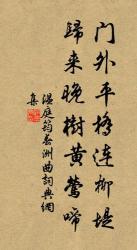 门外平桥连柳堤
归来晚树黄莺啼
温庭筠春洲曲词典网
集